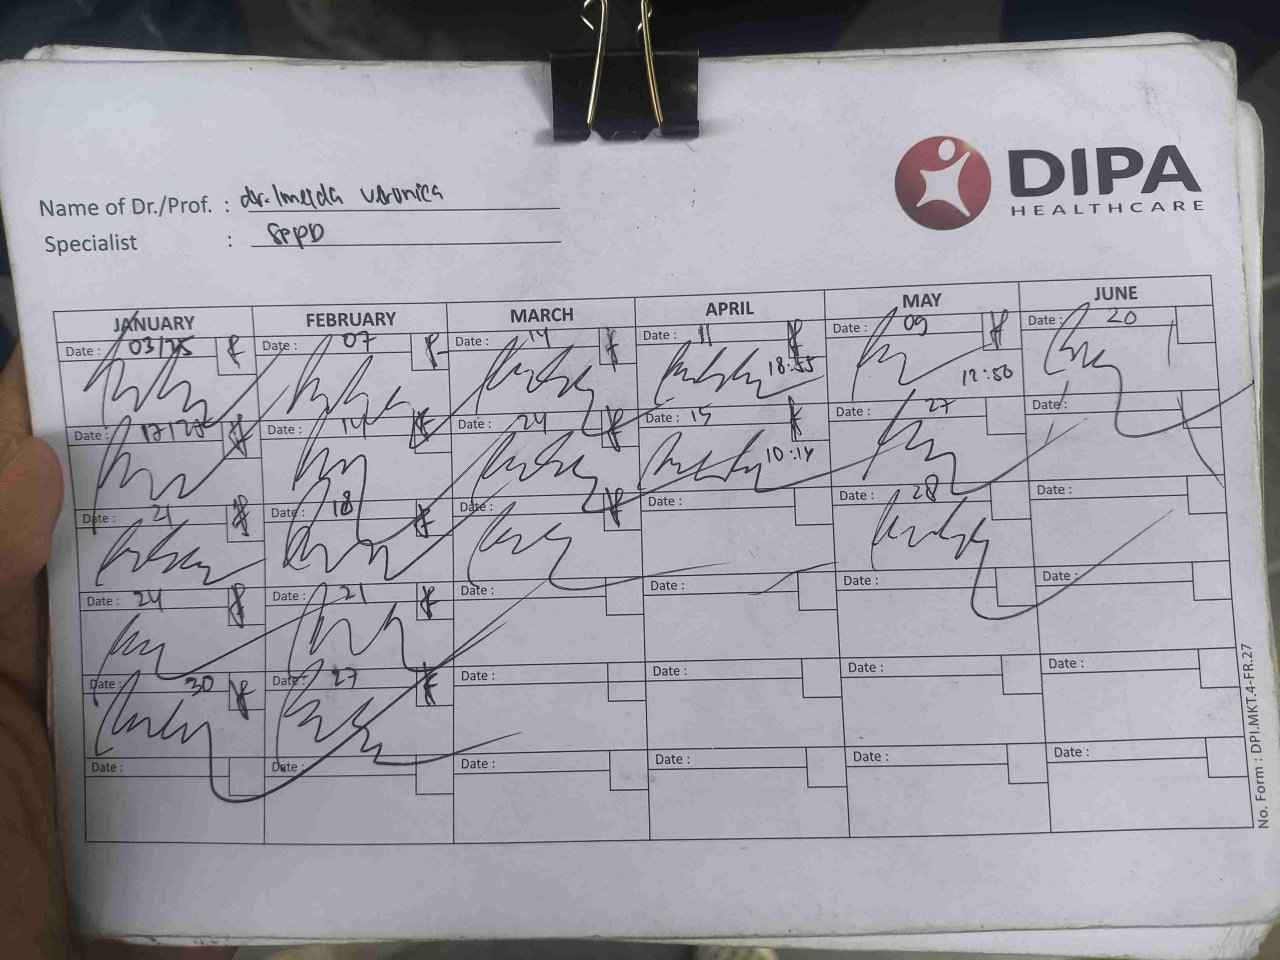 DIPA
HEALTHCARE
Name of Dr./Prof. : dr. Imelda Veronica
Specialist : SPPD
JANUARY FEBRUARY MARCH APRIL MAY JUNE
Date : 03/25 Date : 07 Date : 14 Date : 11 Date : 09 Date : 20
18:55 12:50
Date : 17/25 Date : 14 Date : 24 Date : 15 Date : 27 Date :
10:14
Date : 21 Date : 18 Date : Date : Date : 28 Date :
Date : 24 Date : 21 Date : Date : Date : Date :
Date : 30 Date : 27 Date : Date : Date : Date :
Date : Date : Date : Date : Date : Date :
No. Form : DPI.MKT.4-FR.27